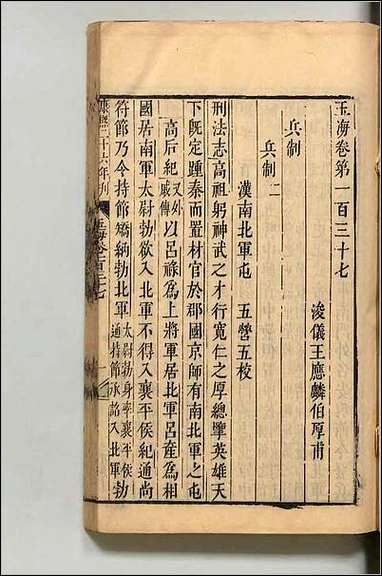 玉海卷第一百三十七
浚儀王應麟伯厚甫
兵制
兵制二
漢南北軍屯 五營五校
刑法志高祖躬神武之才行寬仁之厚總擥英雄天
下既定踵秦而置材官於郡國京師有南北軍之屯
高后紀 又外戚傳 以呂祿為上將軍居北軍呂產為相
國居南軍太尉勃欲入北軍不得入襄平侯紀通尚
符節乃令持節矯納勃北軍 太尉勃身率襄平侯通持節承詔入北軍勃
康熙二十六年刊
玉海卷一百三十七
一